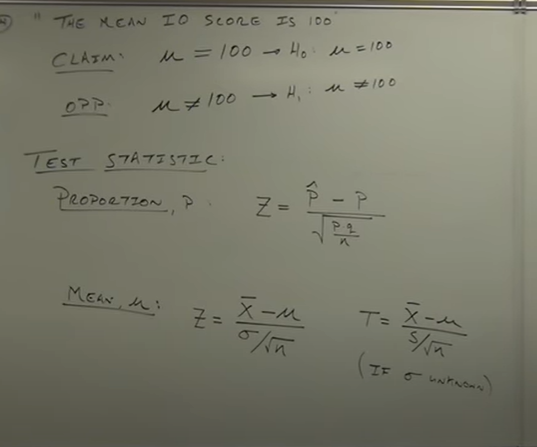 " THE MEAN IQ SCORE IS 100"
CLAIM: μ = 100 → H₀: μ = 100
OPP: μ ≠ 100 → H₁: μ ≠ 100
TEST STATISTIC:
PROPORTION, P: Z = (p̂ - p) / √(p·q/n)
MEAN, μ: Z = (x̄ - μ) / (σ/√n) T = (x̄ - μ) / (s/√n)
(IF σ UNKNOWN)